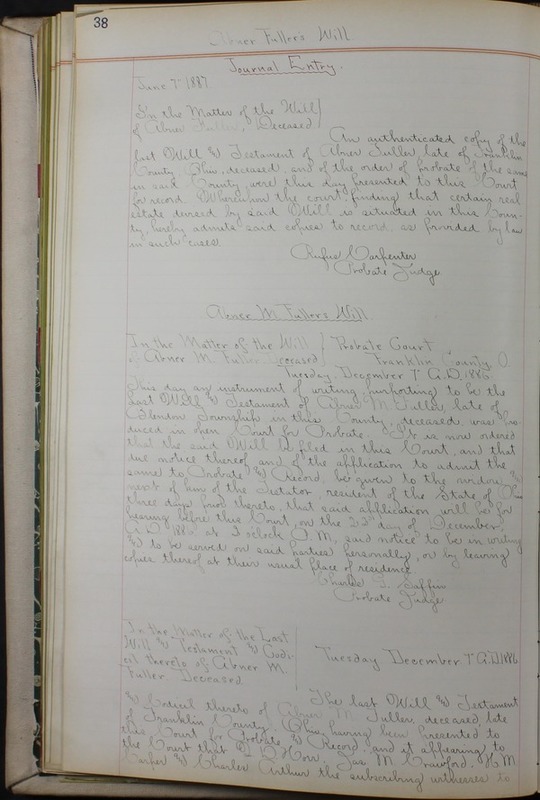 38
Abner Fuller's Will.
Journal Entry.
June 7" 1887
In the Matter of the Will
of Abner Fuller, Deceased
An authenticated copy of the
last Will & Testament of Abner Fuller late of Franklin
County Ohio, deceased, and of the order of probate of the same
in said County were this day presented to this Court
for record. Whereupon the court finding that certain real
estate devised by said Will is situated in this Coun-
ty, hereby admits said copies to record, as provided by law
in such cases.
Rufus Carpenter
Probate Judge
Abner M. Fuller's Will.
In the Matter of the Will
of Abner M. Fuller Deceased
Probate Court
Franklin County O.
Tuesday December 7" A.D. 1886
This day an instrument of writing purporting to be the
last Will & Testament of Abner M. Fuller, late of
Blendon Township in this County, deceased, was pro-
duced in open Court for Probate. It is now ordered
that the said Will be filed in this Court, and that
due notice thereof and of the application to admit the
same to Probate & Record, be given to the widow
next of kin of the Testator resident of the State of Ohio
three days prior thereto, that said application will be for
hearing before this Court, on the day of December,
A.D. 1886, at o'clock M, said notice to be in writing
& to be served on said parties personally, or by leaving
copies thereof at their usual place of residence.
Charles G. Saffin
Probate Judge
In the Matter of the Last
Will & Testament & Codi-
cil thereto of Abner M.
Fuller Deceased
Tuesday December 7" A.D. 1886
The last Will & Testament
& Codicil thereto of Abner M. Fuller, deceased, late
of Franklin County, Ohio, having been presented to
this Court for Probate & Record, and it appearing to
the Court that Horr, Jas. M. Crawford, H M
& Charles Arthur the subscribing witnesses to